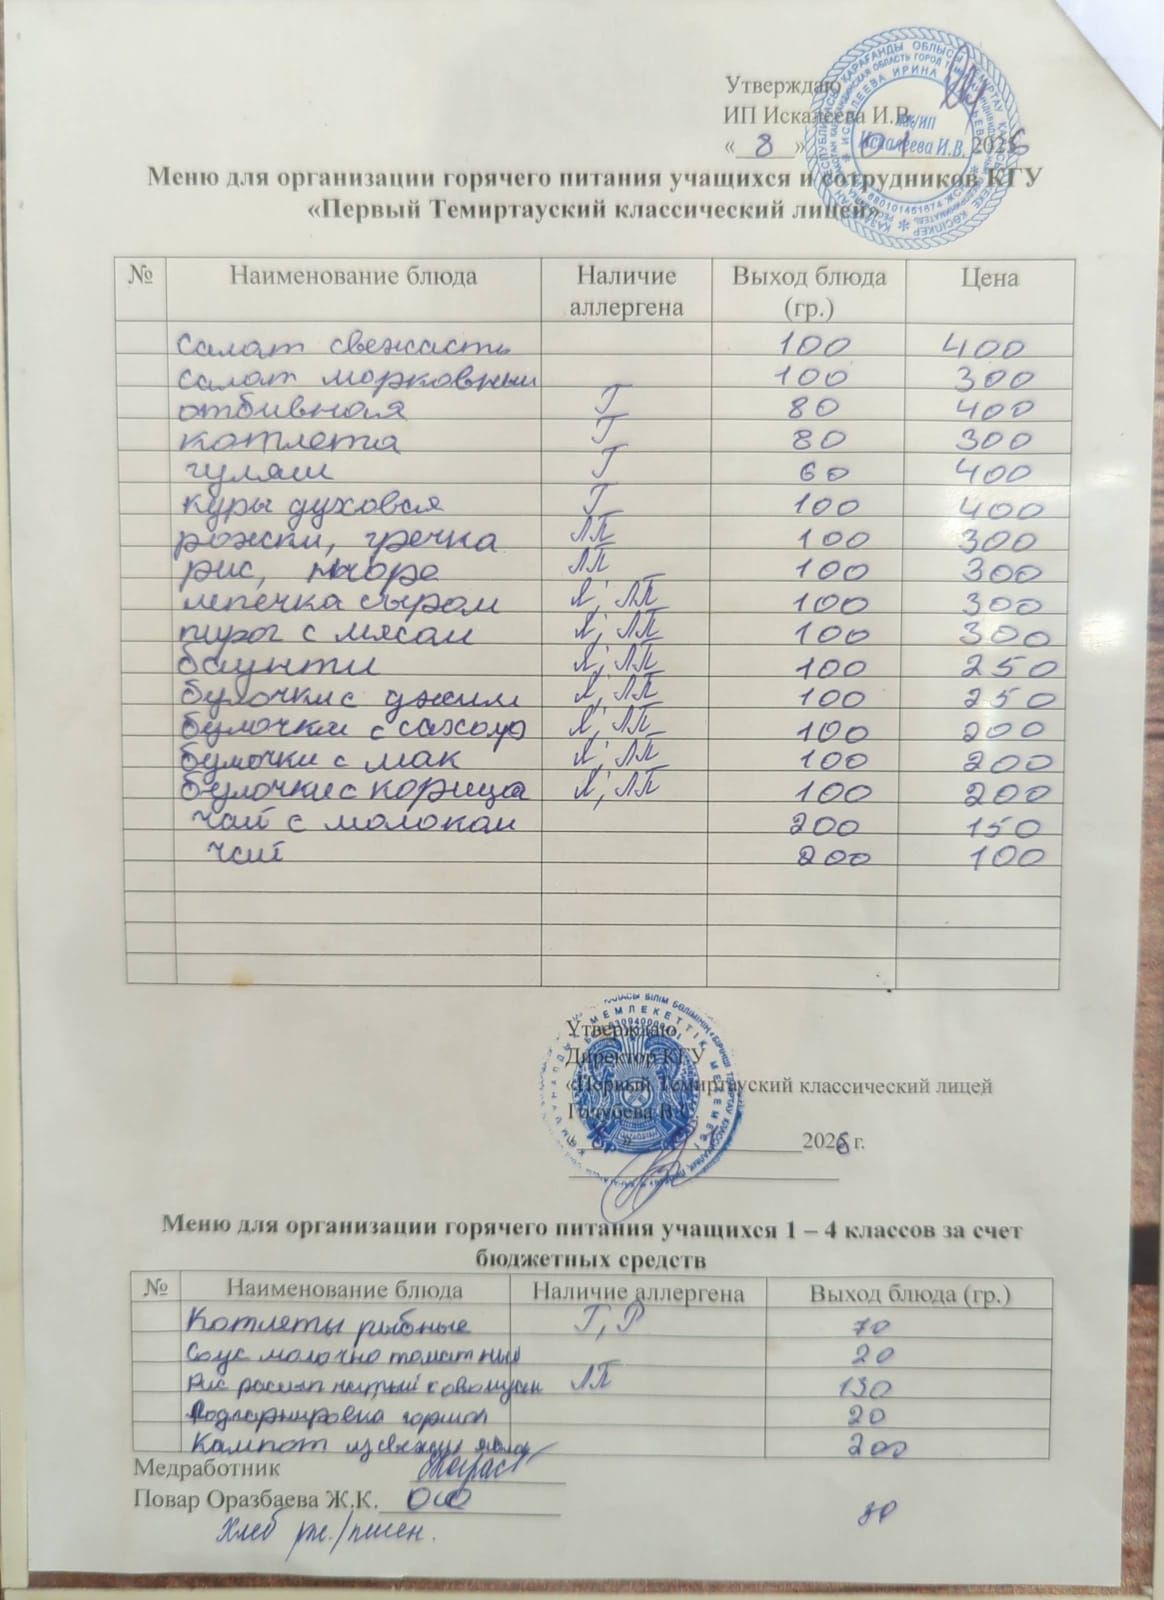 Утверждаю
ИП Искалеева И.В.
« 8 » 01 2026
Меню для организации горячего питания учащихся и сотрудников КГУ
«Первый Темиртауский классический лицей»
№ Наименование блюда Наличие аллергена Выход блюда (гр.) Цена
Салат свежасть 100 400
Салат морковный 100 300
отбивная Г 80 400
котлета Г 80 300
гуляш Г 60 400
куры духовая Г 100 400
рожки, гречка ЛП 100 300
рис, пюре ЛП 100 300
лепечка сыром Я; ЛП 100 300
пирог с мясом Я; ЛП 100 300
баунти Я; ЛП 100 250
булочки с джем Я; ЛП 100 250
булочки с сахар Я; ЛП 100 200
булочки с мак Я; ЛП 100 200
булочки с корица Я; ЛП 100 200
чай с молоком 200 150
чай 200 100
Утверждаю
Директор КГУ
«Первый Темиртауский классический лицей
Голубева
2026 г.
Меню для организации горячего питания учащихся 1 – 4 классов за счет
бюджетных средств
№ Наименование блюда Наличие аллергена Выход блюда (гр.)
Котлеты рыбные Г, Р 70
Соус молочно томатный 20
Рис рассыпчатый с овощами ЛП 130
Подгарнировка горошек 20
Кампот из свежих яблок 200
Медработник
Повар Оразбаева Ж.К.
Хлеб рж./пшен.